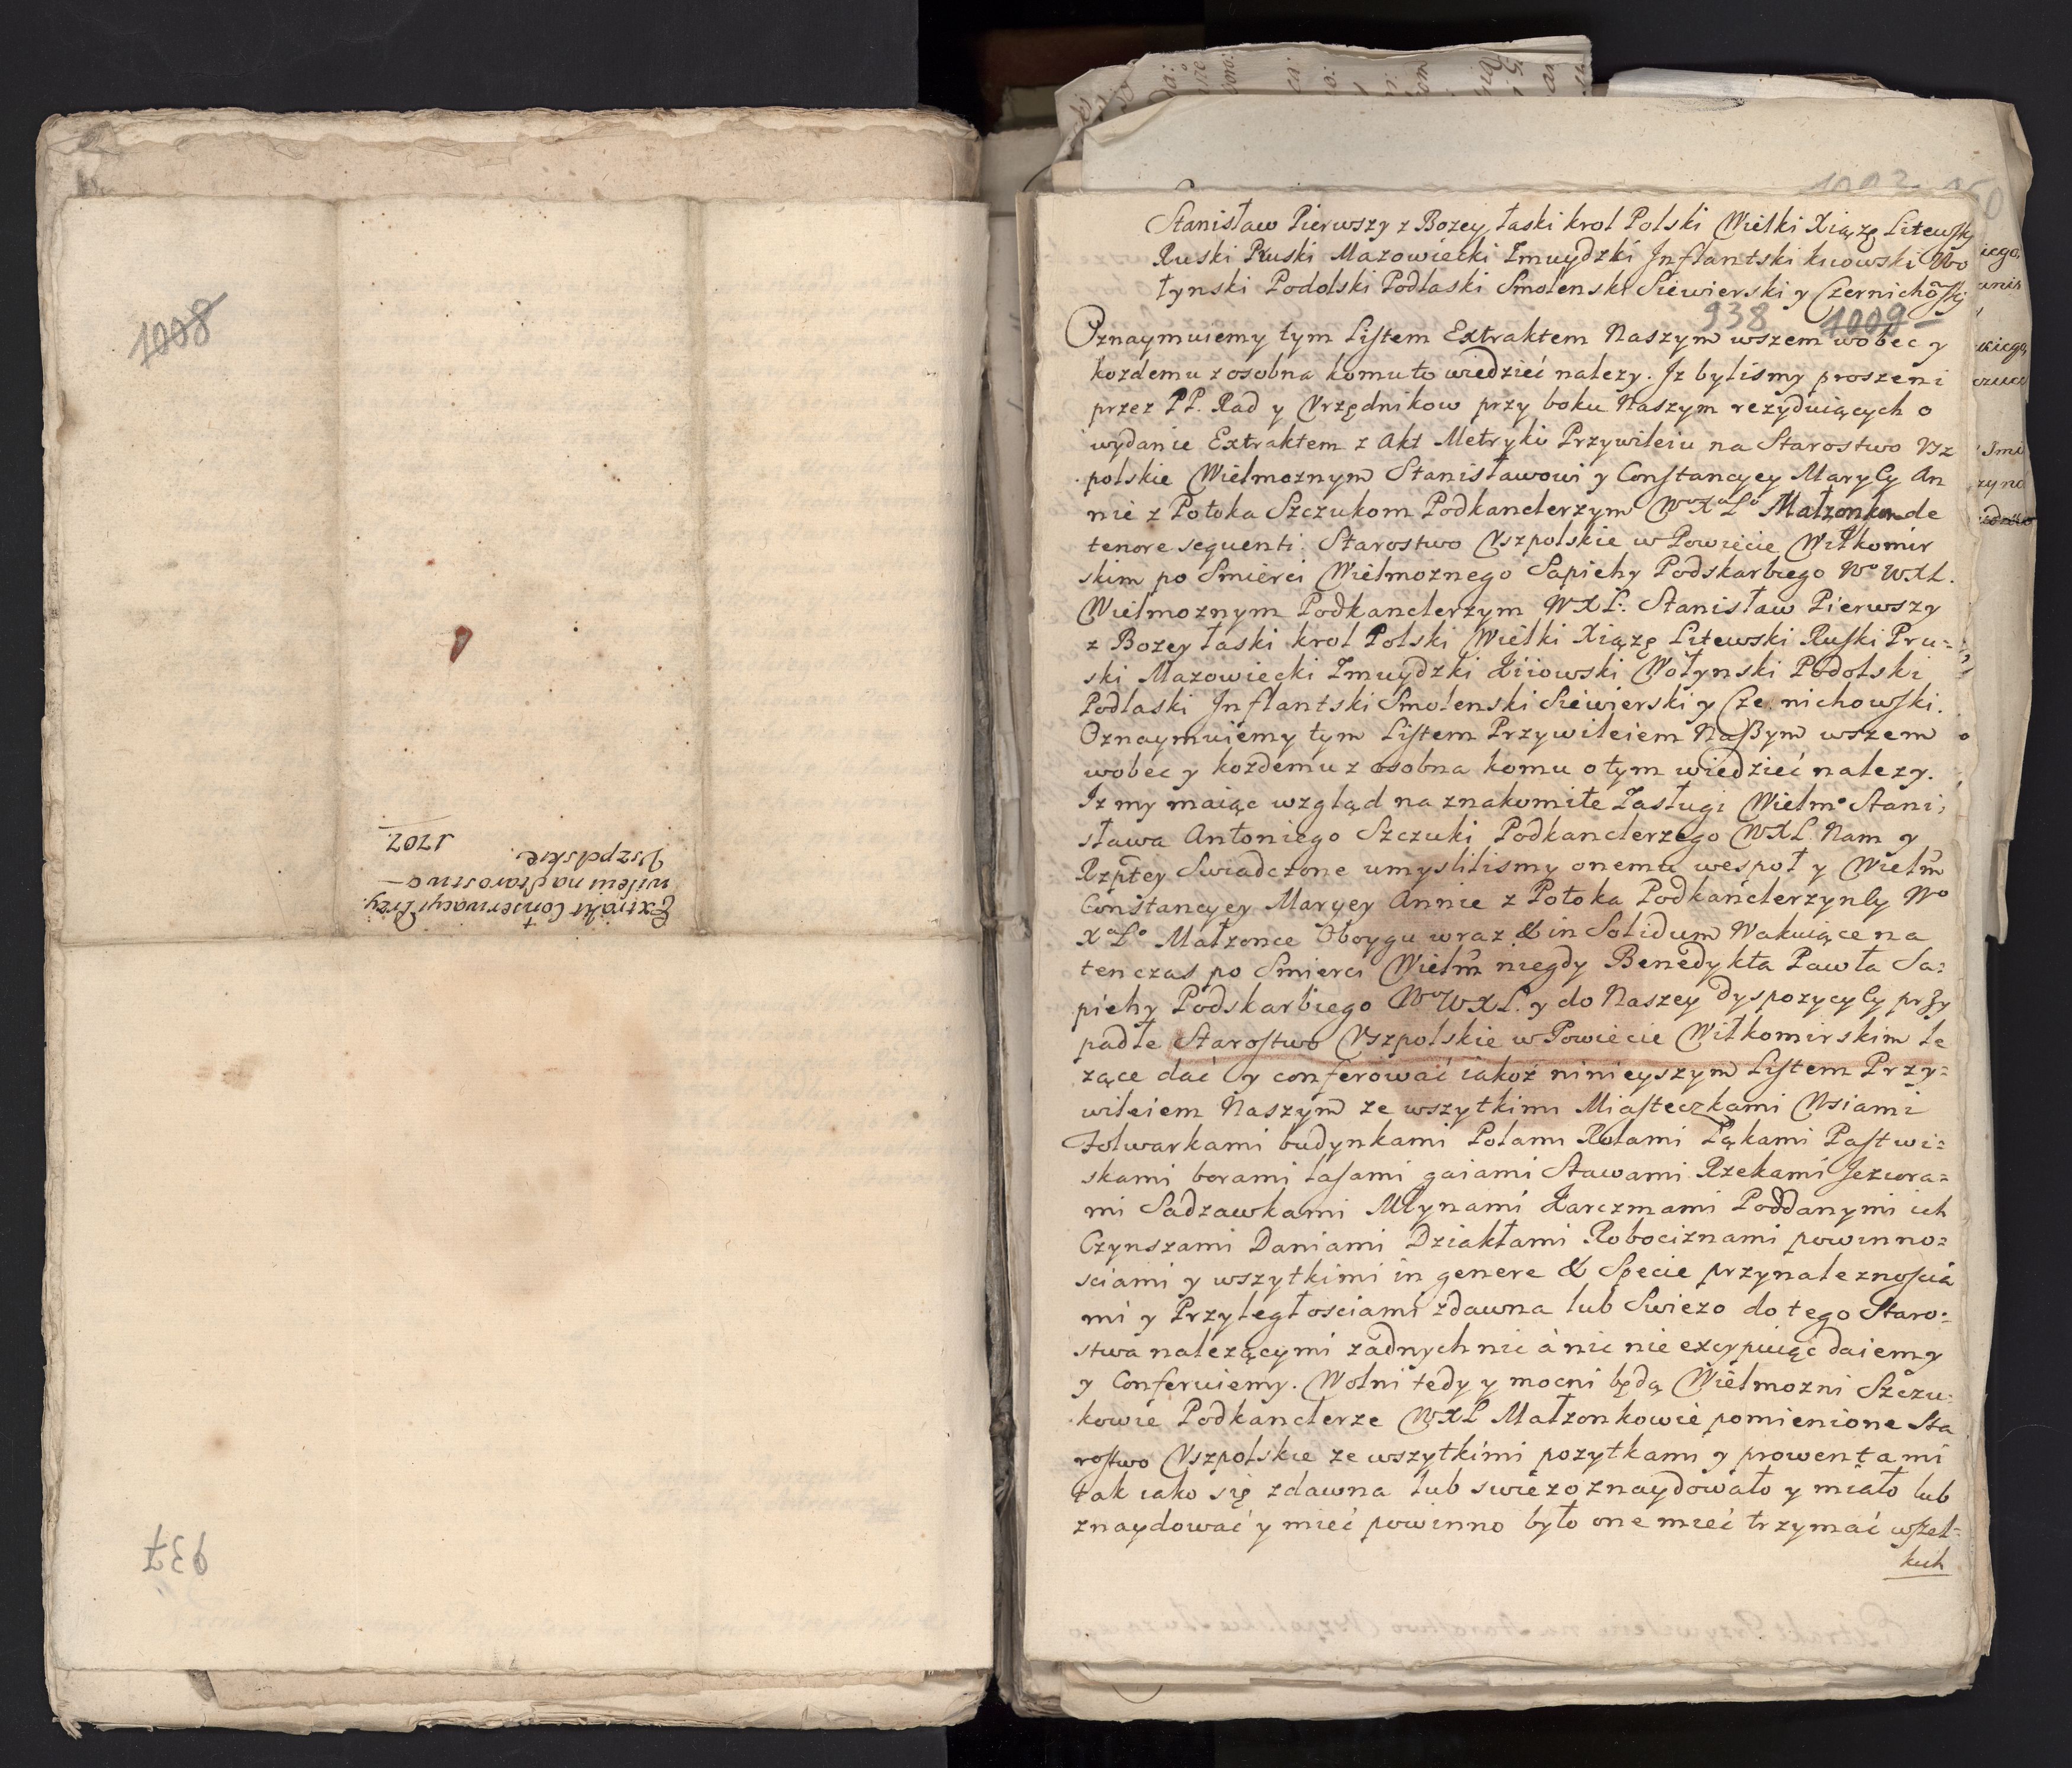 1008
Extrakt Konserwacyi Przy,
wileiu na Starostwo
Uszpolskie.
1702.
937
Stanisław Pierwszy z Bozey łaski krol Polski Wielki Xiąze Litewsky
Ruski Pruski Mazowiecki Zmuydzki Inflantski kiiowski Wo
łynski Podolski Podlaski Smolenski Siewierski y Czernichoski
938 1009
Oznaymuiemy tym Listem Extraktem Naszym wszem wobec y
kozdemu z osobna komu to wiedzieć nalezy. Iz bylismy proszeni
przez PP. Rad y Vrzędnikow przy boku Naszym rezyduiących o
wydanie Extraktem z Akt Metryki Przywileiu na Starostwo Vsz
polskie Wielmoznym Stanisławowi y Constancyey Maryey An
nie z Potoka Szczukom Podkanclerzym Wo Xa Lo Małzonkom de
tenore sequenti. Starostwo Vszpolskie w Powiecie Wiłkomir
skim po Smierci Wielmoznego Sapiehy Podskarbiego No WXL.
Wielmoznym Podkanclerzym WXL: Stanisław Pierwszy
z Bozey łaski krol Polski Wielki Xiązę Litewski Ruski Pru=
ski Mazowiecki Zmuydzki Kiiowski Wołynski Podolski
Podlaski Inflantski Smolenski Siewierski y Cze.nichowski.
Oznaymuiemy tym Listem Przywileiem Naszym wszem
wobec y kozdemu z osobna komu o tym wiedzieć nalezy.
Iz my maiąc wzgląd na znakomite Zasługi Wielmo Stani,
sława Antoniego Szczuki Podkanclerzego WXL Nam y
Rzptey Swiadczone umyslilismy onemu wespoł y Wielm
Constancyey Maryey Annie z Potoka Podkanclerzyney Wo
Xa Lo Małzonce Oboygu wraz & in Solidum Wakuiące na
ten czas po Smierci Wielm niegdy Benedykta Pawła Sa=
piehy Podskarbiego No WXL. y do Naszey dyspozycyey przy
padłe Starostwo Vszpolskie w Powiecie Wiłkomirskim le
zące dać y conferować iakoz ninieyszym Listem Przy=
wileiem Naszym ze wszytkimi Miasteczkami Wsiami
Folwarkami budynkami Polami Rolami Łąkami Pastwi=
skami borami lasami gaiami Stawami Rzekami Jeziora=
mi Sadzawkami Młynami Karczmami Poddanymi ich
Czynszami Daniami Dziakłami Robociznami powinno=
sciami y wszytkimi in genere & Specie przynaleznoscia
mi y Przyległosciami zdawna lub Swiezo do tego Staro=
stwa nalezącymi zadnych nic á nic nie excypuiąc daiemy
y Conferuiemy. Wolni tedy y mocni będą Wielmozni Szczu=
kowie Podkanclerze WXL Małzonkowie pomienione Sta
rostwo Vszpolskie ze wszytkimi pozytkami y prowentami
tak iako się zdawna lub swiezo znaydowało y miało lub
znaydować y mieć powinno było one mieć trzymać wszel=
kich